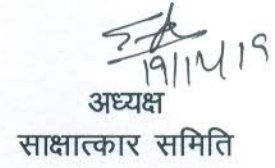 19/12/19
अध्यक्ष
साक्षात्कार समिति